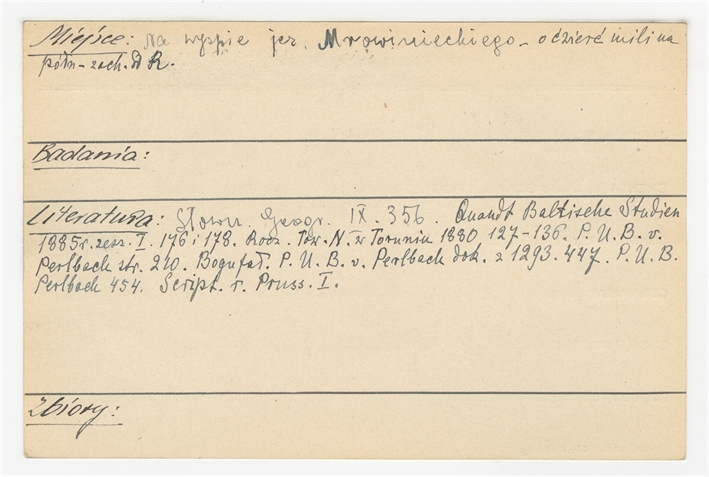 Miejsce: Na wyspie jez. Mrowinieckiego - o ćzierć mili na
półn-zach. od R.
Badania:
Literatura: Słown. Geogr. IX. 356. Quandt Baltische Studien
1885 r. zesz. I. 176 i 178. Rocz. Tow. N. w Toruniu 1880 127-136. P. U. B. v.
Perlbach str. 210. Bogufał. P. U. B. v. Perlbach dok. z 1293. 447. P. U. B.
Perlbach 454. Script. r. Pruss. I.
Zbiory: